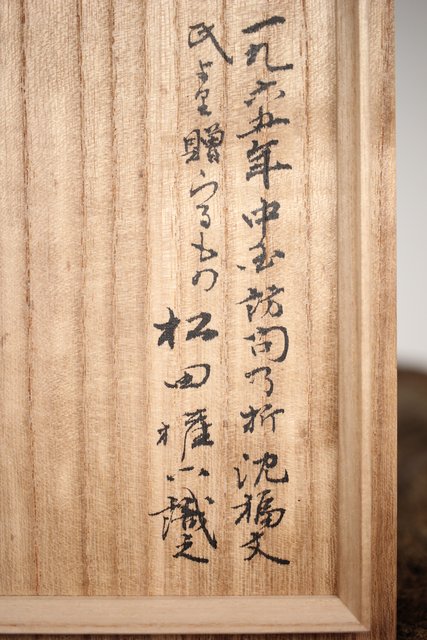 一九六五年中国訪問乃折沈福文
氏より贈らるもの 松田権六識之